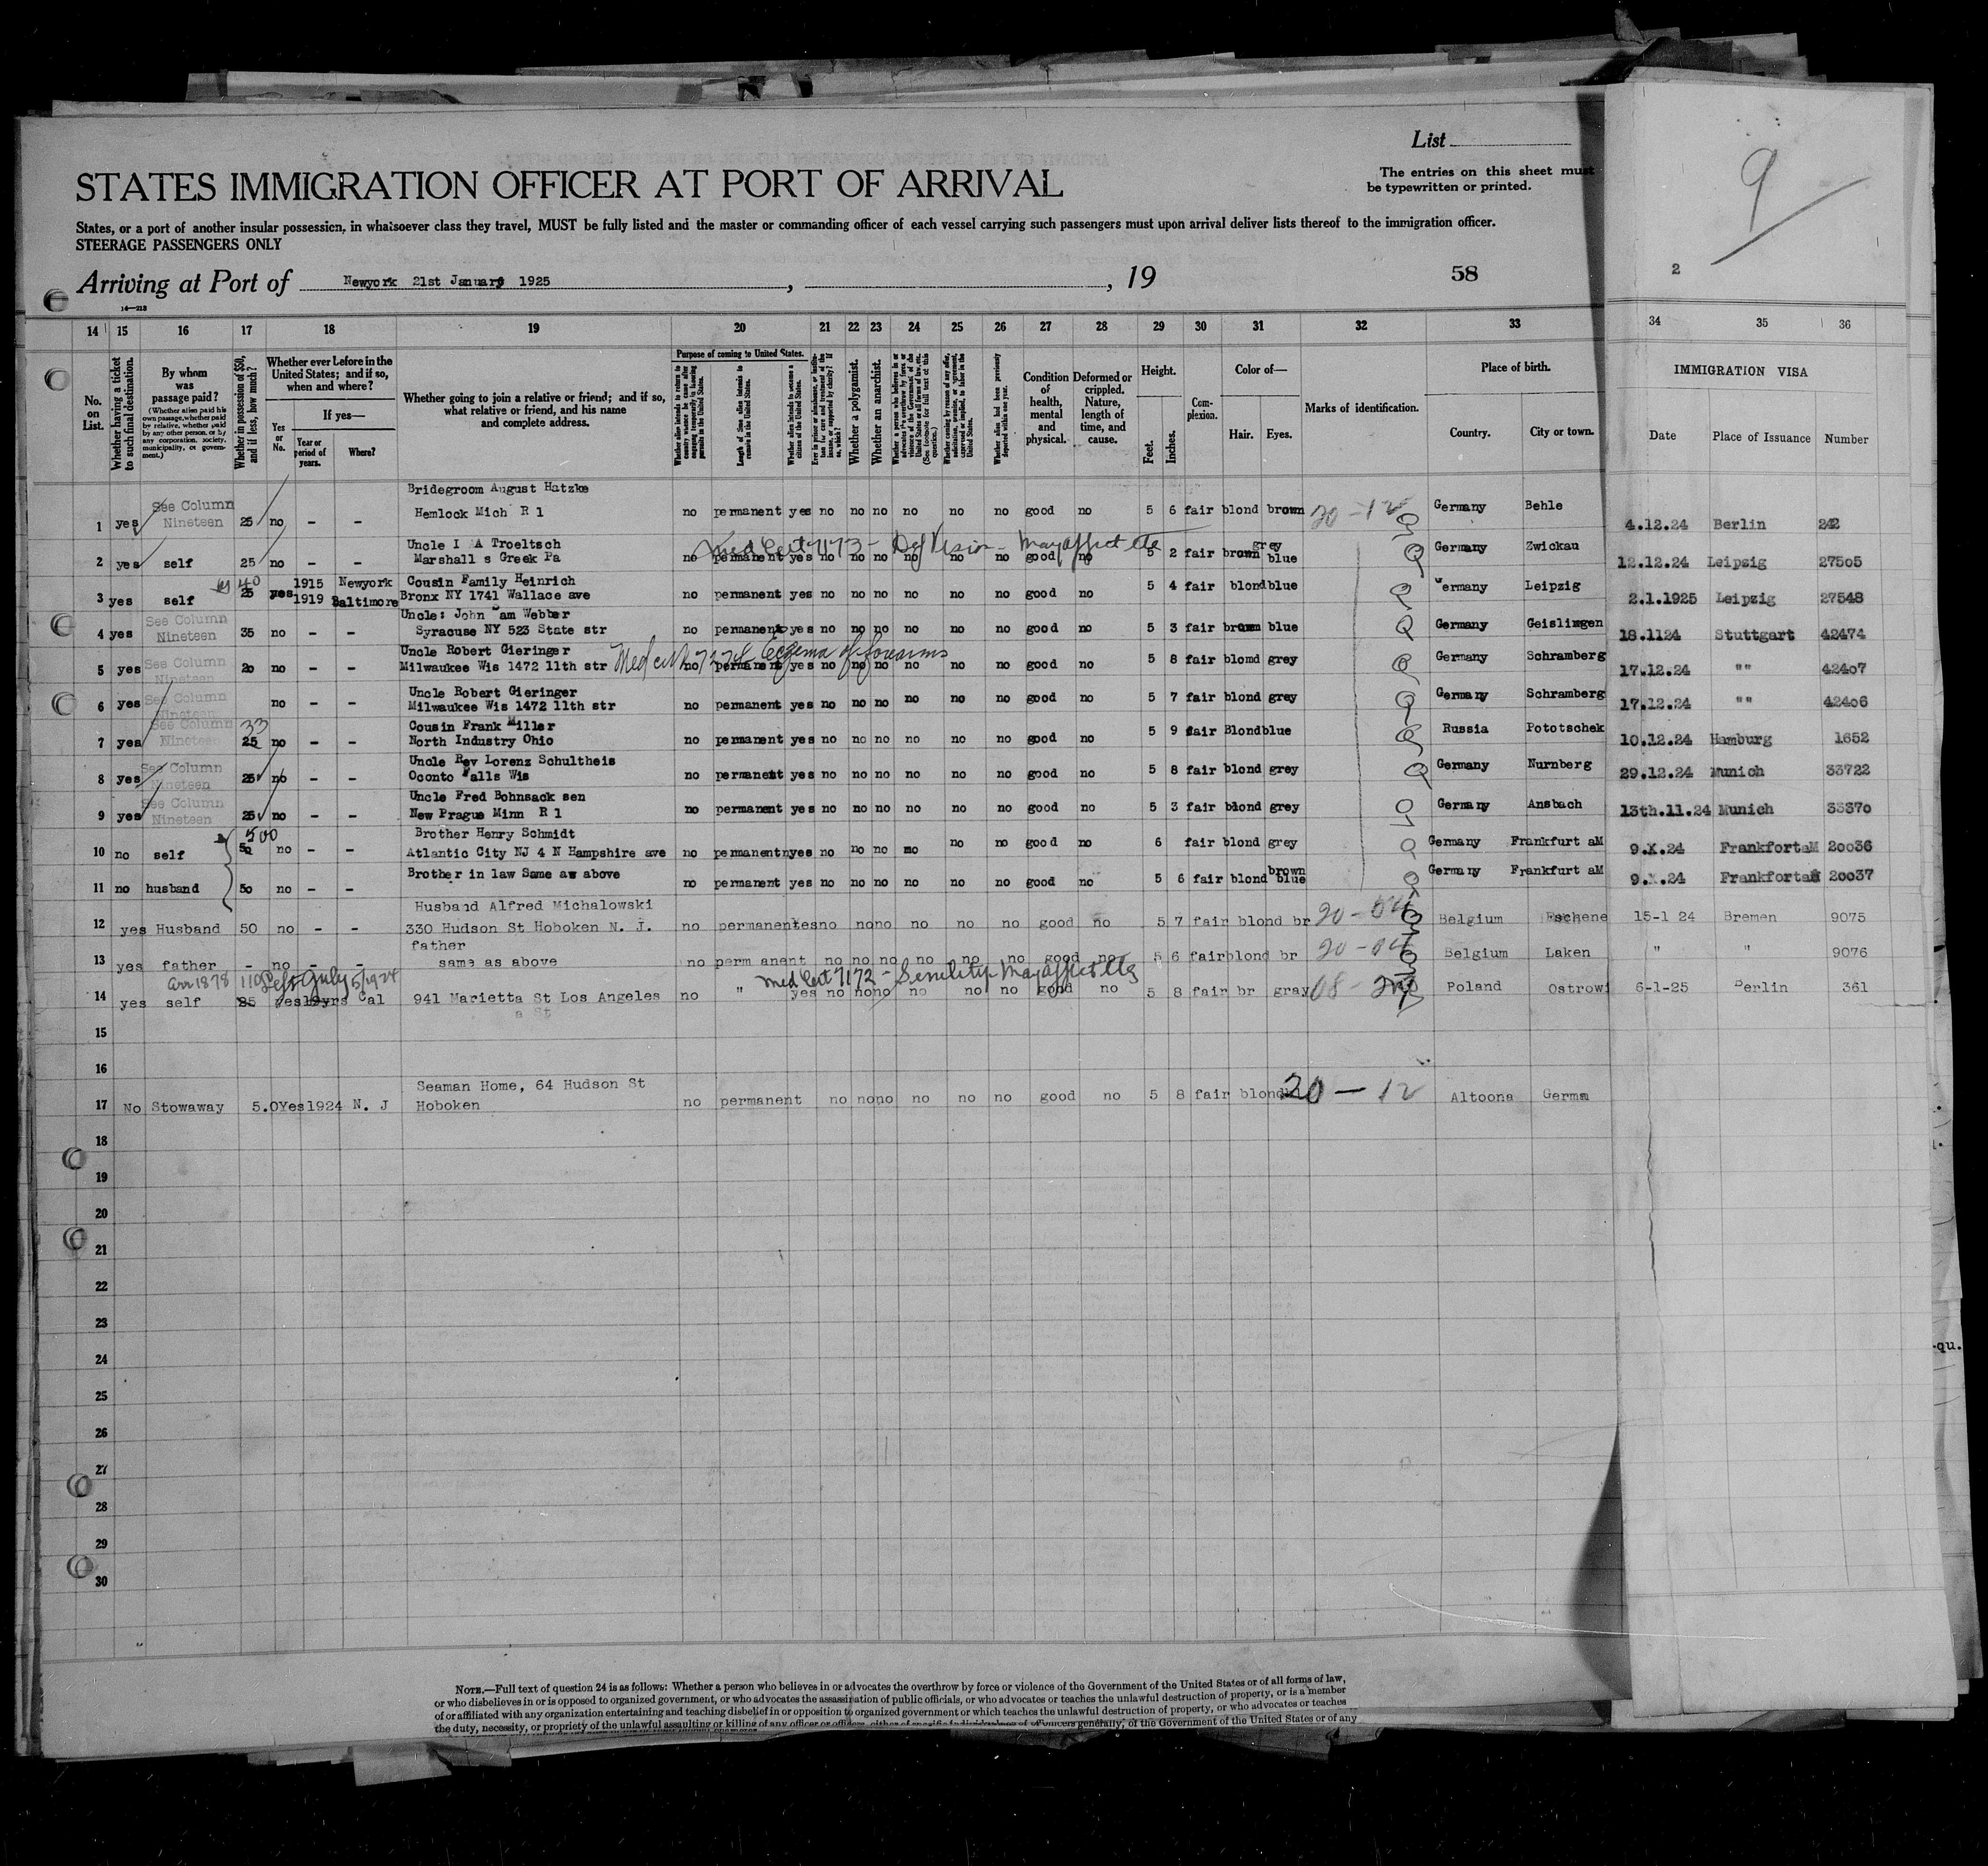 List
The entries on this sheet must
be typewritten or printed.
9
STATES IMMIGRATION OFFICER AT PORT OF ARRIVAL
States, or a port of another insular possession, in whatsoever class they travel, MUST be fully listed and the master or commanding officer of each vessel carrying such passengers must upon arrival deliver lists thereof to the immigration officer.
STEERAGE PASSENGERS ONLY
Arriving at Port of Newyork 21st January 1925 , , 19 58 2
14 15 16 17 18 19 20 21 22 23 24 25 26 27 28 29 30 31 32 33 34 35 36
No. on List.
Whether having a ticket to such final destination.
By whom was passage paid?
(Whether alien paid his own passage, whether paid by relative, whether paid by any other person, or by any corporation, society, municipality, or government.)
Whether in possession of $50, and if less, how much?
Whether ever before in the United States; and if so, when and where?
Yes or No.
If yes—
Year or period of years.
Where?
Whether going to join a relative or friend; and if so, what relative or friend, and his name and complete address.
Purpose of coming to United States.
Whether a polygamist.
Whether an anarchist.
Condition of health, mental and physical.
Deformed or crippled. Nature, length of time, and cause.
Height.
Feet. Inches.
Complexion.
Color of—
Hair. Eyes.
Marks of identification.
Place of birth.
Country. City or town.
IMMIGRATION VISA
Date Place of Issuance Number
Bridegroom August Hatzke
1 yes See Column Nineteen 25 no - - Hemlock Mich R 1 no permanent yes no no no no no no good no 5 6 fair blond brown 20-12 Germany Behle 4.12.24 Berlin 242
Uncle I A Troeltsch Med Cert 7173 - Def Vision - May affect etc grey
2 yes self 25 no - Marshall s Greek Pa no permanent yes no no no no no no good no 5 2 fair brown blue Germany Zwickau 12.12.24 Leipzig 27505
40 1915 Newyork Cousin Family Heinrich
3 yes self 25 yes 1919 Baltimore Bronx NY 1741 Wallace ave no permanent yes no no no no no no good no 5 4 fair blond blue Germany Leipzig 2.1.1925 Leipzig 27548
Uncle: John Dam Webber
4 yes See Column Nineteen 35 no - - Syracuse NY 523 State str no permanent yes no no no no no no good no 5 3 fair brown blue Germany Geislingen 18.1124 Stuttgart 42474
Uncle Robert Gieringer Med cert 7274 Eczema of forearms
5 yes See Column Nineteen 20 no - - Milwaukee Wis 1472 11th str no permanent yes no no no no no no good no 5 8 fair blomd grey Germany Schramberg 17.12.24 "" 42407
Uncle Robert Gieringer
6 yes See Column Nineteen no - - Milwaukee Wis 1472 11th str no permanent yes no no no no no no good no 5 7 fair blond grey Germany Schramberg 17.12.24 "" 42406
33 Cousin Frank Miller
7 yes See Column Nineteen 25 no - - North Industry Ohio no permanent yes no no no no no no good no 5 9 fair Blond blue Russia Pototschek 10.12.24 Hamburg 1652
Uncle Rev Lorenz Schultheis
8 yes See Column Nineteen 25 no - - Oconto Falls Wis no permanent yes no no no no no no good no 5 8 fair blond grey Germany Nurnberg 29.12.24 Munich 33722
Uncle Fred Bohnsack sen
9 yes See Column Nineteen 25 no - - New Prague Minn R 1 no permanent yes no no no no no no good no 5 3 fair blond grey Germany Ansbach 13th.11.24 Munich 33370
500 Brother Henry Schmidt
10 no self 50 no - - Atlantic City NJ 4 N Hampshire ave no permanent yes no no no no no no good no 6 fair blond grey Germany Frankfurt aM 9.X.24 FrankfortaM 20036
Brother in law Same as above brown
11 no husband 50 no - - no permanent yes no no no no no no good no 5 6 fair blond blue Germany Frankfurt aM 9.X.24 FrankfortaM 20037
Husband Alfred Michalowski
12 yes Husband 50 no - - 330 Hudson St Hoboken N. J. no permanent yes no no no no no no good no 5 7 fair blond br 20-04 Belgium Eschene 15-1 24 Bremen 9075
father
13 yes father - no - - same as above no perm anent no no no no no no good no 5 6 fair blond br 20-04 Belgium Laken " " 9076
arr 1878 110 Left July 5/1924 Med Cert 7172 - Senility - May affect etc
14 yes self 25 yes 19yrs Cal 941 Marietta St Los Angeles no " yes no no no no no no good no 5 8 fair br gray 08- Poland Ostrowi 6-1-25 Berlin 361
a St
15
16
Seaman Home, 64 Hudson St
17 No Stowaway 5.0 Yes 1924 N. J Hoboken no permanent no no no no no no good no 5 8 fair blond 20-12 Altoona Germa
18
19
20
21
22
23
24
25
26
27
28
29
30
-qu.
NOTE.—Full text of question 24 is as follows: Whether a person who believes in or advocates the overthrow by force or violence of the Government of the United States or of all forms of law,
or who disbelieves in or is opposed to organized government, or who advocates the assassination of public officials, or who advocates or teaches the unlawful destruction of property, or is a member
of or affiliated with any organization entertaining and teaching disbelief in or opposition to organized government or which teaches the unlawful destruction of property, or who advocates or teaches
the duty, necessity, or propriety of the unlawful assaulting or killing of any officer or officers, either of specific individuals or of officers generally, of the Government of the United States or of any